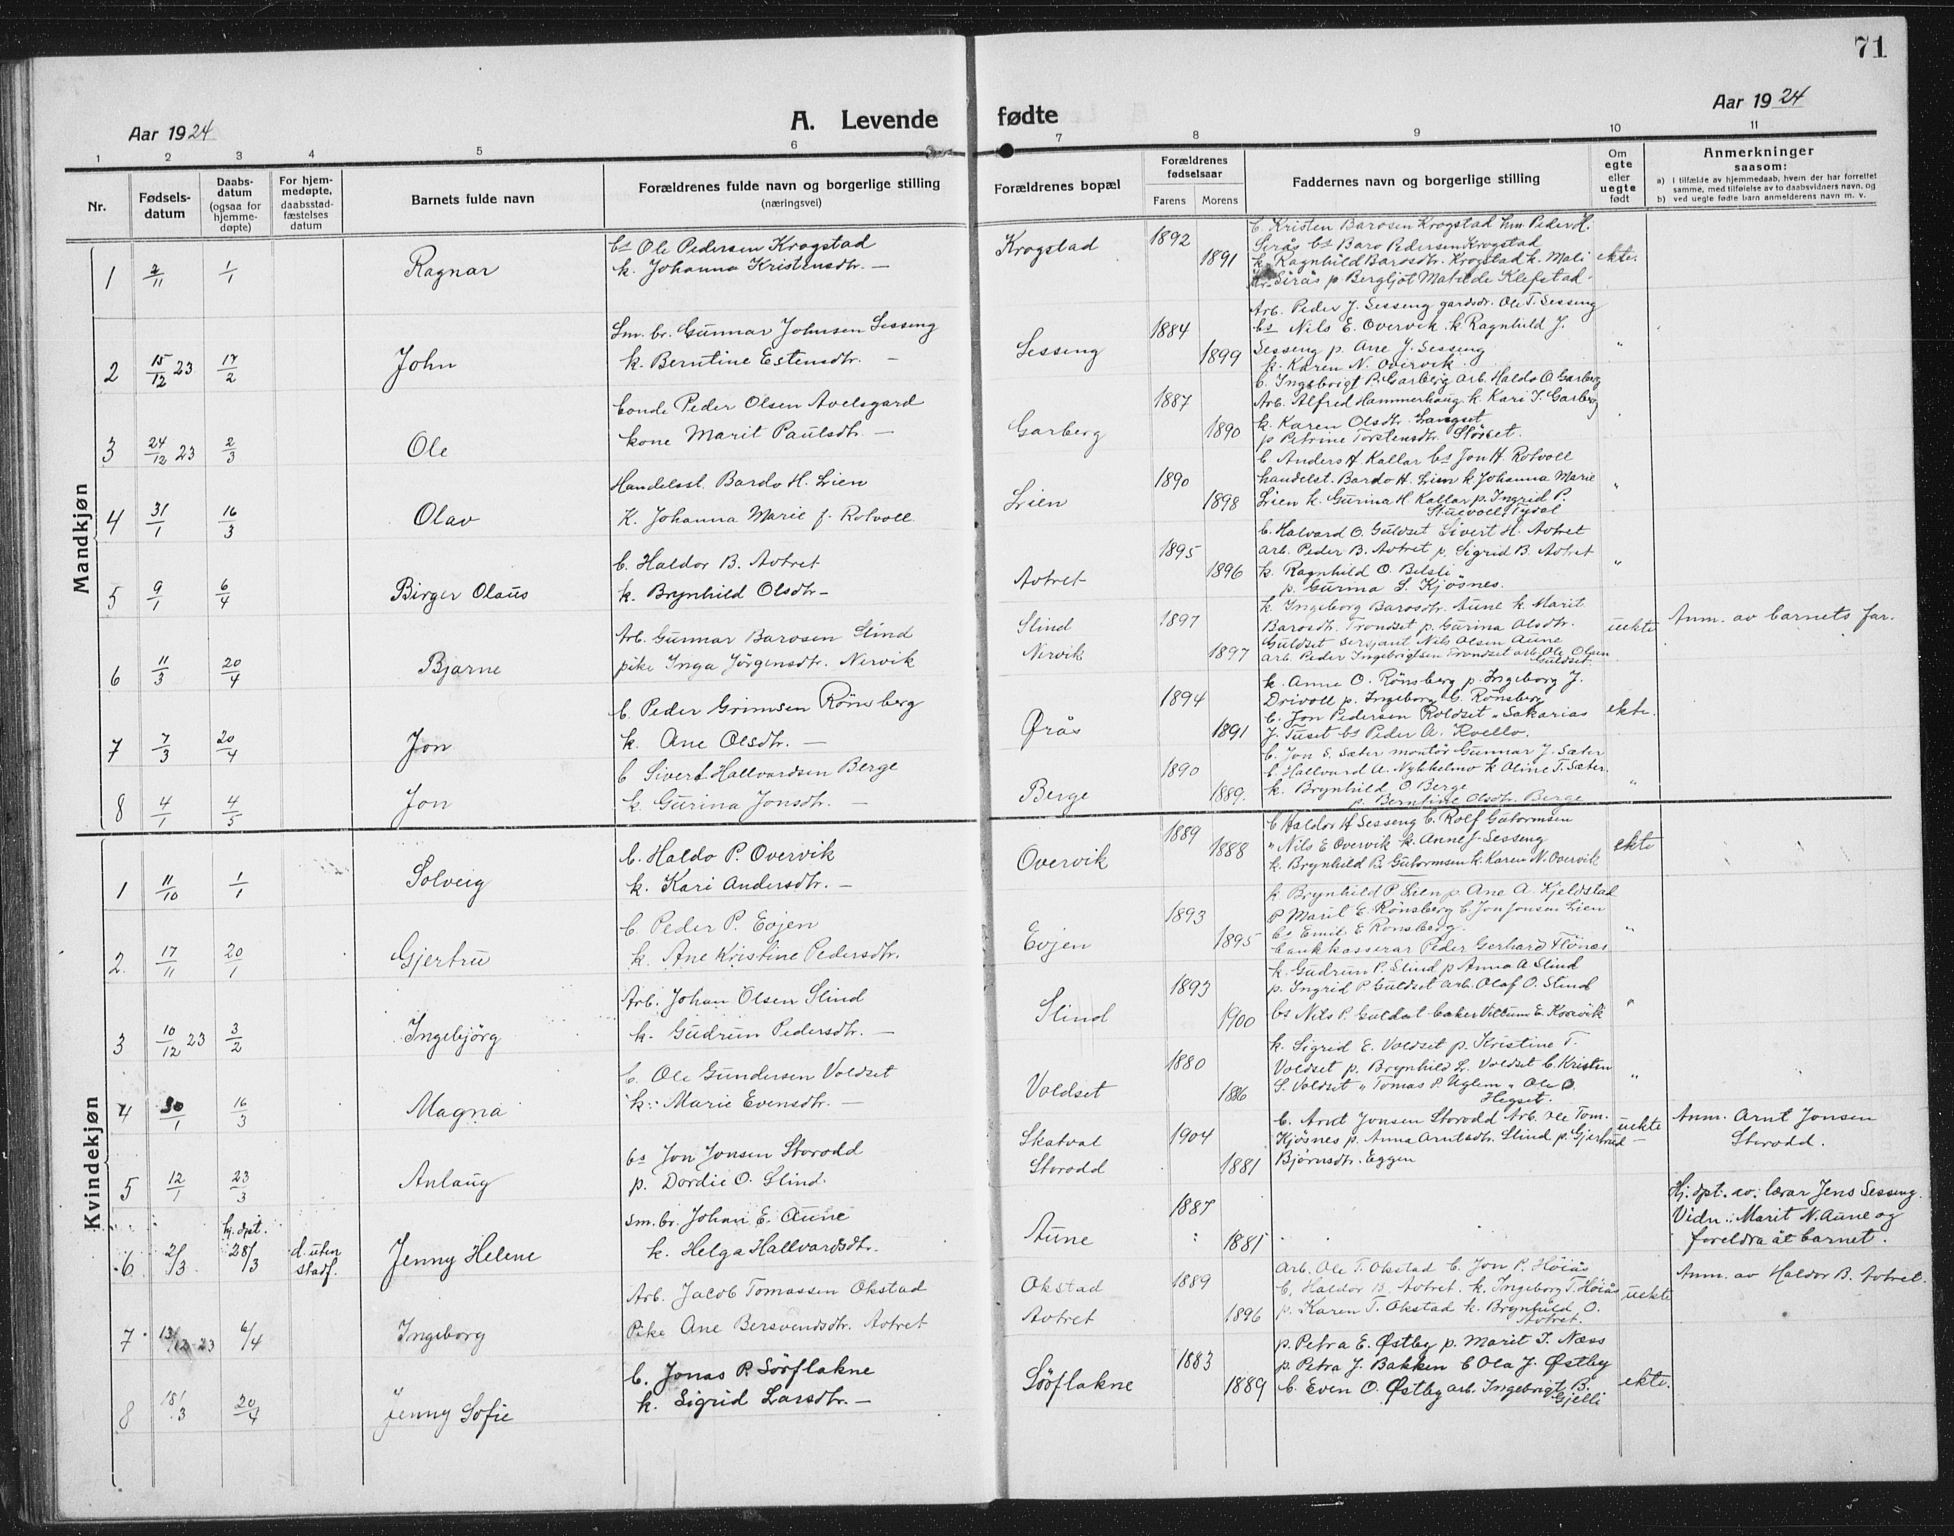 71
Aar 1924
A. Levende fødte
Aar 1924
1 2 3 4 5 6 7 8 9 10 11
Nr.
Fødsels-
datum
Daabs-
datum
(ogsaa for
hjemme-
døpte)
For hjem-
medøpte,
daabsstad-
fæstelses
datum
Barnets fulde navn
Forældrenes fulde navn og borgerlige stilling
(næringsvei)
Forældrenes bopæl
Forældrenes
fødselsaar
Farens Morens
Faddernes navn og borgerlige stilling
Om
egte
eller
uegte
født
Anmerkninger
saasom:
a) I tilfælde av hjemmedaab, hvem der har forrettet
samme, med tilføielse av to daabsvidners navn, og
b) ved uegte fødte barn anmelderens navn m. v.
Mandkjøn
1 2/11 1/1 Ragnar
bs Ole Pedersen Krogstad
k. Johanna Kristensdtr. —
Krogstad 1892 1891
b. Kristen Barosen Krogstad hm. Peder H.
Serås bs Baro Pedersen Krogstad
k. Ragnhild Barosdtr. Krogstad k. Mali
Serås p Bergljot Matilde Klefstad.
ekte.
2 15/12 23 17/2 John
Sm. br. Gunnar Johnsen Sesseng
k. Berntine Estensdtr. —
Sesseng 1884 1899
Arb. Peder J. Sesseng gardsdr. Ole T. Sesseng
bs Nils E. Overvik. k Ragnhild J.
Sesseng p. Ane J. Sesseng
k. Karen N. Overvik.
"
3 24/12 23 2/3 Ole
bonde Peder Olsen Avelsgard
kone Marit Paulsdtr. —
Garberg 1887 1890
b. Ingebrigt P. Garberg arb. Haldo O. Garberg
Arb. Alfred Hammerhaug k. Kari T. Garberg
k. Karen Olsdtr. Langset.
p Petrine Torstensdtr. Störset.
4 31/1 16/3 Olav
Handelsst. Bardo H. Lien
K. Johanna Marie f. Rotvoll
Lien 1890 1898
b. Anders H. Kallar bs Jon H. Rotvoll
handelst. Bardo H. Lien k Johanna Marie
Lien k. Gurina H Kallar p. Ingrid P.
Stuevoll, Tydal
"
5 9/1 6/4 Birger Olaus
b. Haldor B. Avtret
k. Brynhild Olsdtr —
Avtret 1895 1896
b. Halvard O. Guldset Sivert H. Avtret
arb. Peder B. Avtret p. Sigrid B. Avtret
k. Ragnhild O. Belsli
p. Gurina S. Kjösnes.
"
6 11/3 20/4 Bjarne
Arb. Gunnar Barosen Slind
pike Inga Jörgensdtr. Nervik
Slind
Nervik 1897 1897
k. Ingeborg Barosdtr. Aune k. Marit
Barosdtr. Trondset p. Gurina Olsdtr.
Guldset sersjant Nils Olsen Aune
arb. Peder Ingebrigtsen Trondset arb. Ole Olsen
Guldset.
uekte Anm. av barnets far.
7 7/3 20/4 Jon
b. Peder Grimsen Rönsberg
k. Ane Olsdtr. —
Ørås 1894 1891
k. Anne O. Rönsberg p. Ingeborg J.
Drivoll p. Ingeborg G. Rönsberg
b. Jon Pedersen Roldset " Sakarias
J. Tuset bs Peder A. Kvello.
ekte.
8 4/1 4/5 Jon
b Sivert Hallvardsen Berge
k. Gurina Jonsdtr. —
Berge 1890 1889.
b. Jon S. Sæter montör Gunnar J. Sæter
b. Hallvard A. Nykkelmo k Oline T. Sæter.
k. Brynhild O Berge
p. Berntine Olsdtr. Berge
"
Kvindekjøn
1 11/10 1/1 Solveig
b. Haldo P. Overvik
k. Kari Andersdtr. —
Overvik 1889 1888
b Haldor H Sesseng b. Rolf Gutormsen
" Nils E Overvik k. Anne J. Sesseng
k. Brynhild B. Gutormsen k. Karen N. Overvik
ekte
2. 17/11 20/1 Gjertru
b Peder P. Evjen
k. Ane Kristine Pedersdtr.
Evjen 1893 1895
k Brynhild P. Lien p. Ane A. Kjeldstad
p Marit E. Rönsberg b. Jon Jonsen Lien
bs Emil E Ronsberg.
bankkasserar Peder Gerhard Flönes
"
3 10/12 23 3/2 Ingebjörg
Arb. Johan Olsen Slind
k. Gudrun Pedersdtr. —
Slind 1893 1900
k. Gudrun P. Slind p Anna A Slind
p. Ingrid P Guldset arb. Olaf O. Slind
bs Nils P. Guldset baker Villum E. Kosvik
"
4 30/1 16/3 Magna
b. Ole Gundersen Voldset
k. Marie Evensdtr. —
Voldset 1880 1886
k. Sigrid E. Voldset p. Kristine T.
Voldset p. Brynhild L. Voldset b. Kristen
S. Voldset " Tomas P. Uglem " Ole O
Hegset.
"
5 12/1 23/3 Anlaug
bs Jon Jonsen Storodd
p. Dordie O. Slind.
Skatval
Storodd 1904 1881
b. Arnt Jonsen Storodd Arb. Ole Tom.
Kjösnes p. Anna Arntsdtr. Slind p. Gjertrud —
Bjørnsdtr. Eggen
uekte Anm. Arnt Jonsen
Storodd.
6 21/3 hj. dpt. 28/3 d. uten
stadf. Jenny Helene
sm. br. Johan E. Aune
k. Helga Hallvardsdtr.
Aune 1887 1885
Hj. dpt. av: lærar Jens Sesseng.
Vidn: Marit N. Aune og
foreldra åt barnet.
7 13/12 23 6/4 Ingeborg
Arb. Jacob Tomassen Okstad
Pike Ane Bersvendsdtr. Avtret
Okstad
Avtret 1889 1896
Arb. Ole T. Okstad b. Jon P. Höiås
b. Haldor B. Avtret. k. Ingeborg T. Höiås
p. Karen T. Okstad k. Brynhild O.
Avtret.
uekte Anm. av Haldor B. Avtret.
8 18/3 20/4 Jenny Sofie
b. Jonas P. Söflakne
k. Sigrid Larsdtr. —
Söflakne 1883 1889
p. Petra E. Østby p. Marit T. Næss
p. Petra J. Bakken b Ola J. Østby
b. Even O. Østby arb. Ingebrigt B.
Gjelli
ekte.